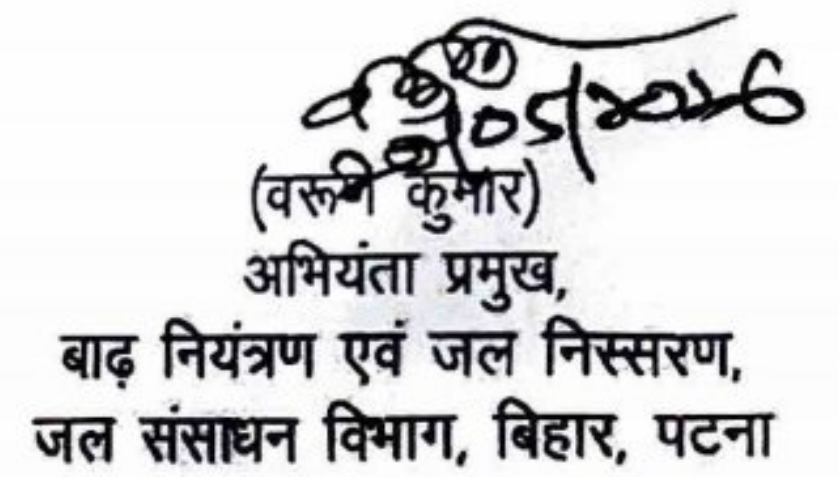 05/2026
(वरूण कुमार)
अभियंता प्रमुख,
बाढ़ नियंत्रण एवं जल निस्सरण,
जल संसाधन विभाग, बिहार, पटना